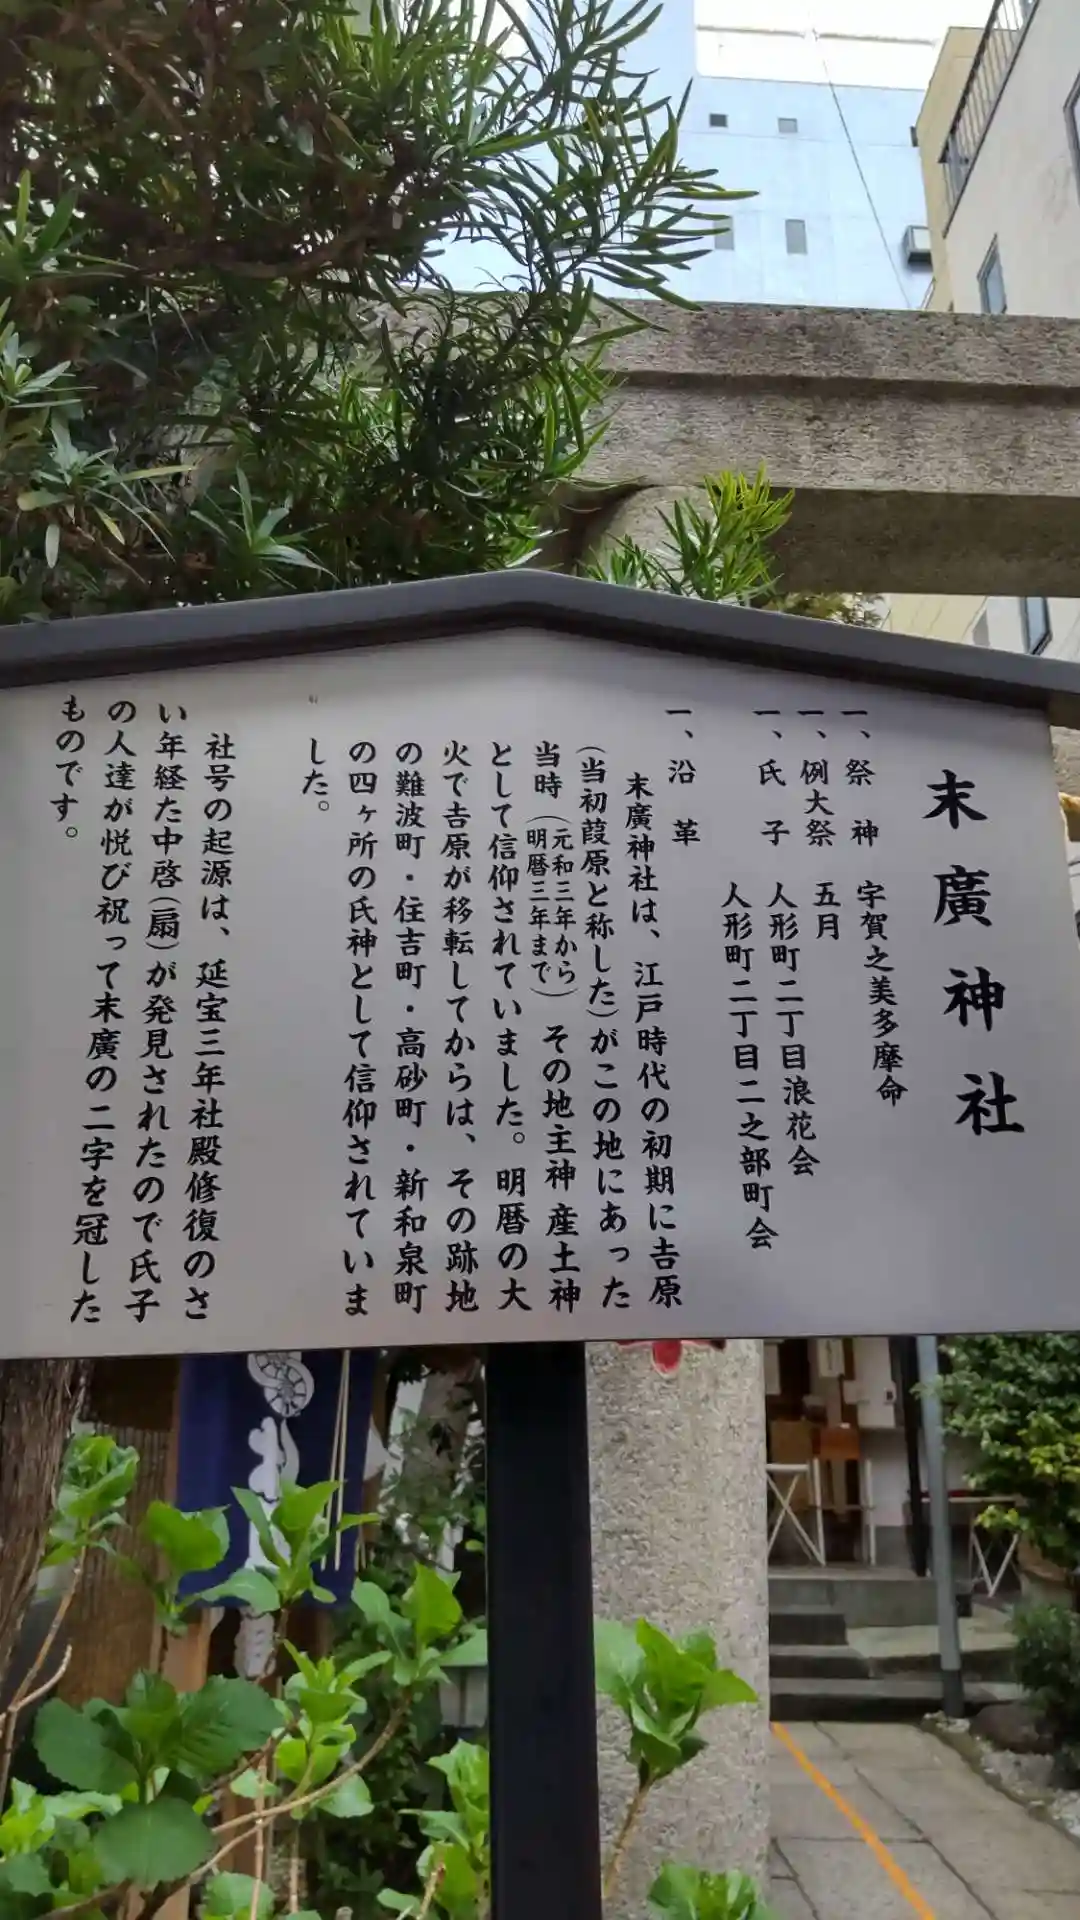 末廣神社
一、祭　神　宇賀之美多摩命
一、例大祭　五月
一、氏　子　人形町二丁目浪花会
人形町二丁目二之部町会
一、沿　革
末廣神社は、江戸時代の初期に吉原
(当初葭原と称した)がこの地にあった
当時(元和三年から明暦三年まで)その地主神産土神
として信仰されていました。明暦の大
火で吉原が移転してからは、その跡地
の難波町・住吉町・高砂町・新和泉町
の四ヶ所の氏神として信仰されていま
した。
社号の起源は、延宝三年社殿修復のさ
い年経た中啓(扇)が発見されたので氏子
の人達が悦び祝って末廣の二字を冠した
ものです。